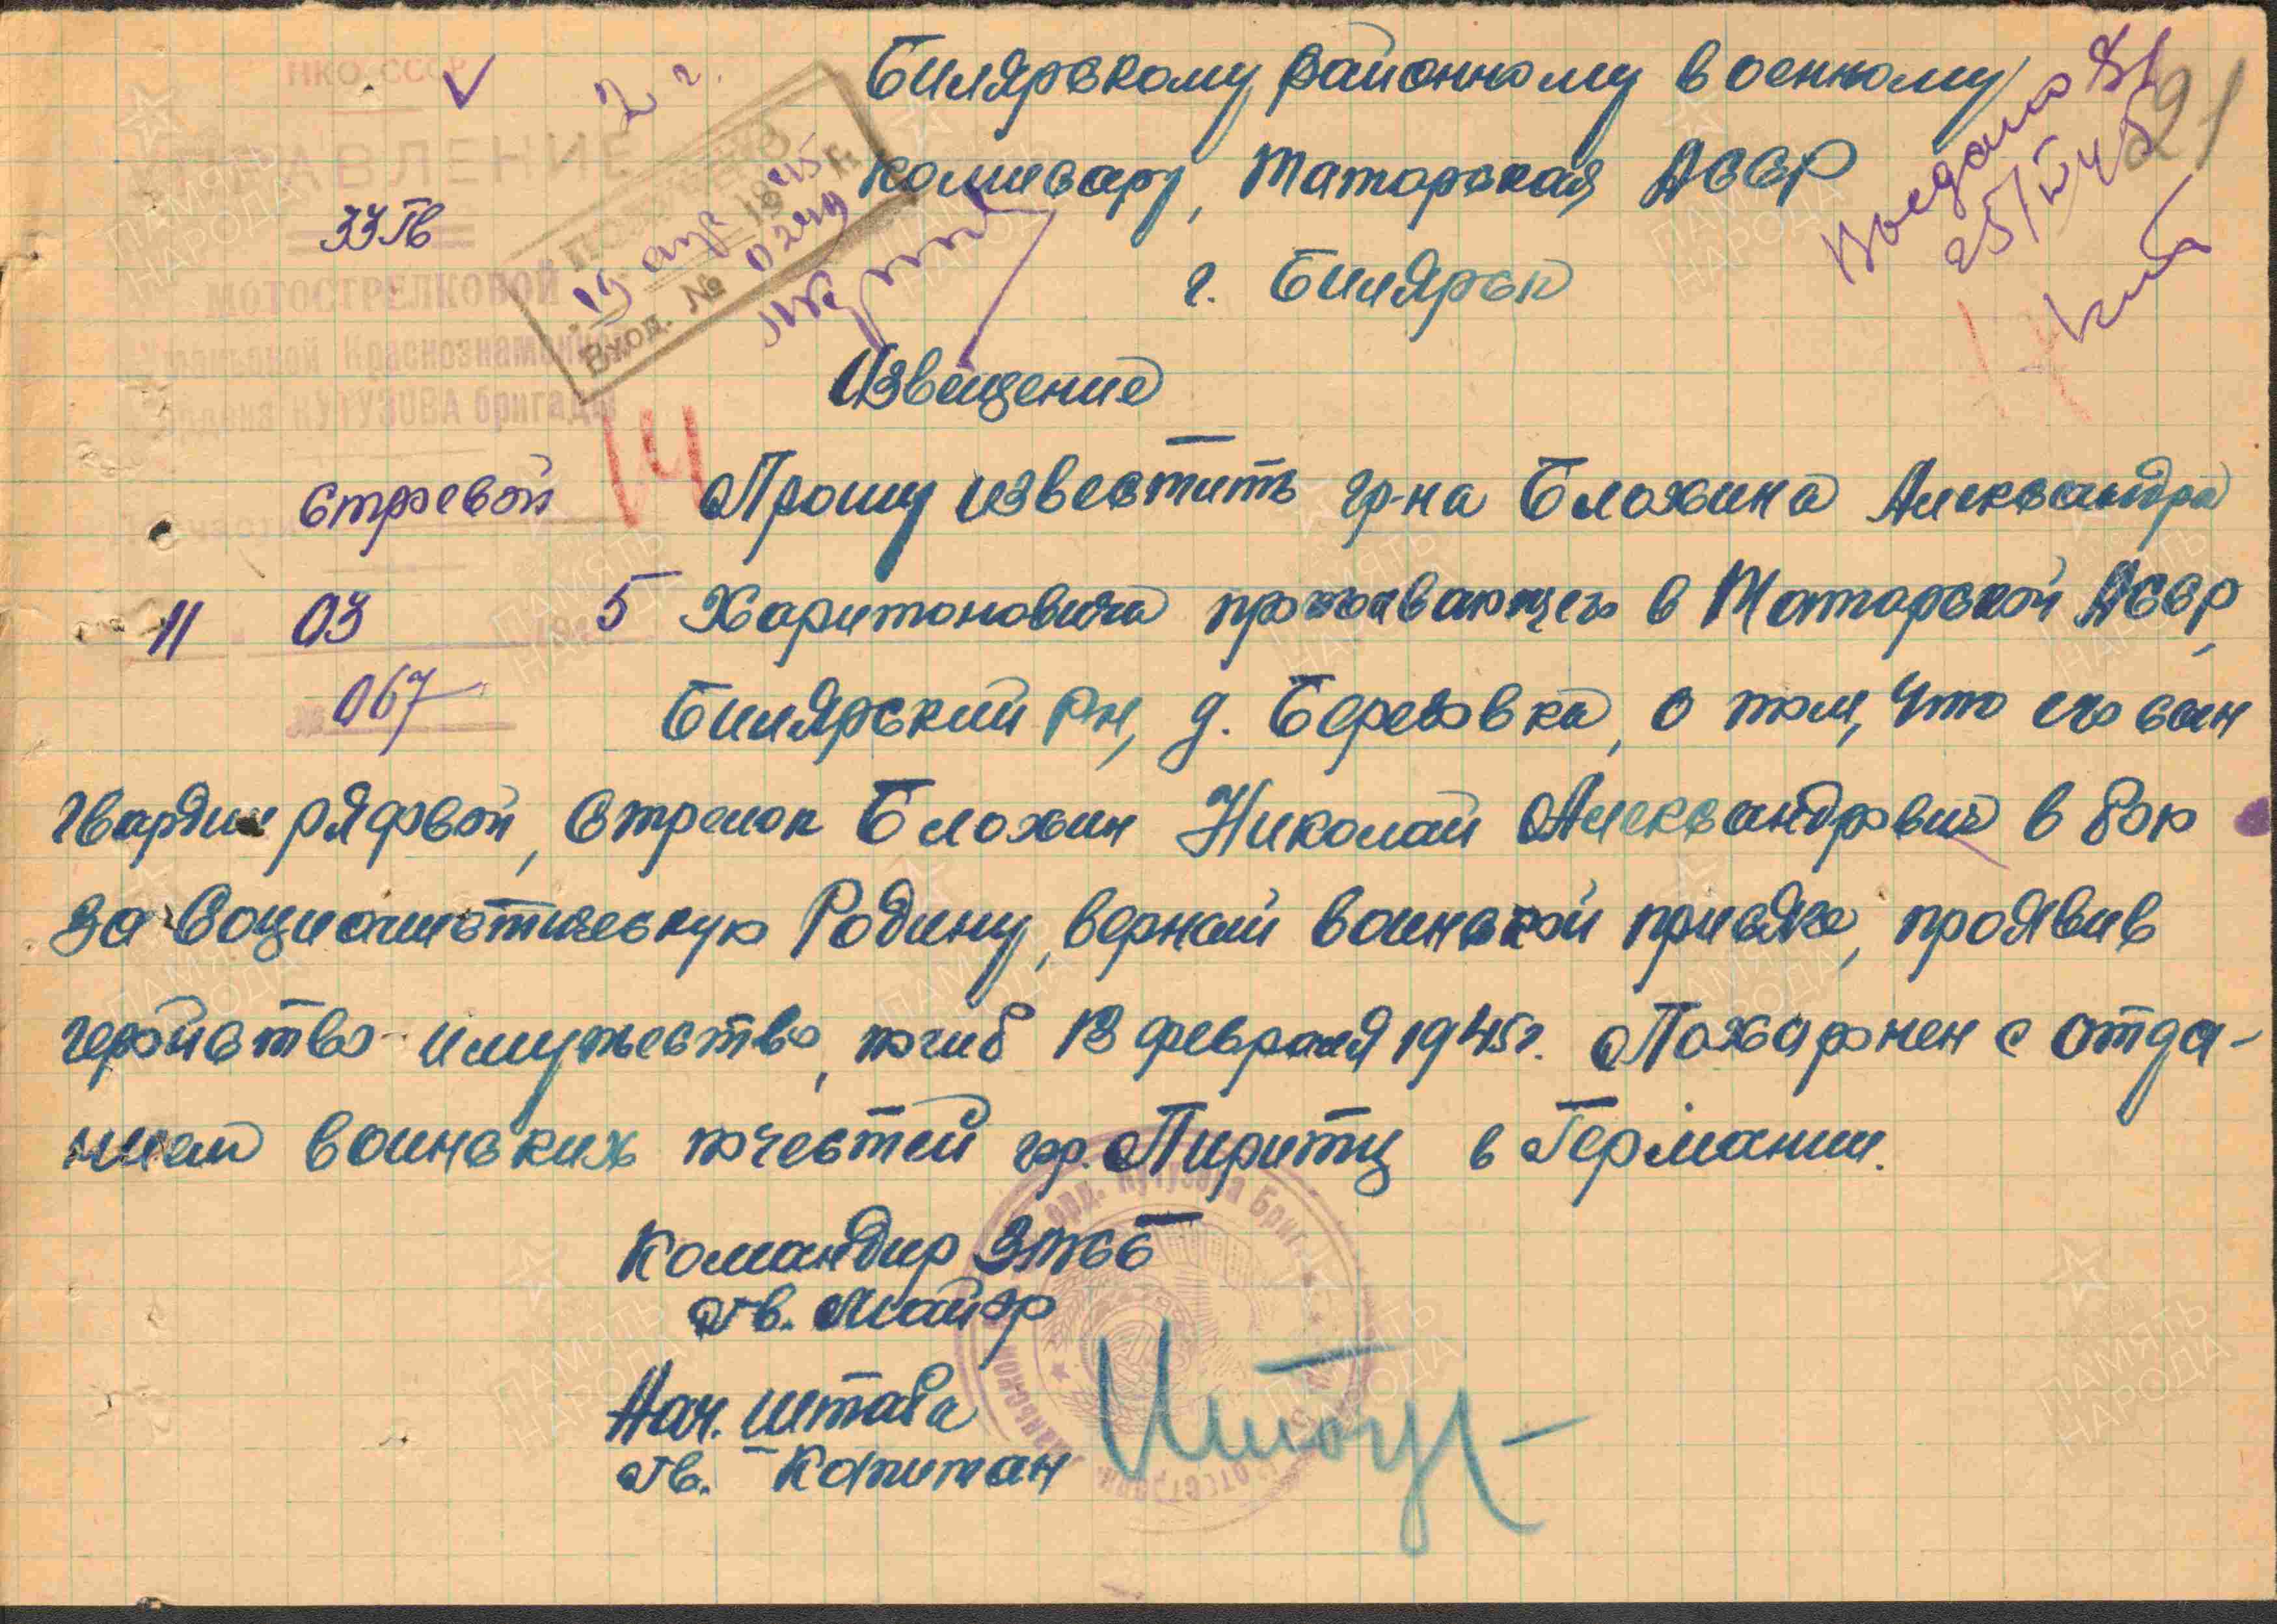 НКО СССР
УПРАВЛЕНИЕ
33 Гв
МОТОСТРЕЛКОВОЙ
Краснознаменной
ордена КУТУЗОВА бригады
строевой
11 03 5
№ 067
2 г.
ПОЛУЧЕНО
"19" апр 1945 г.
Вход. № 0249
Билярскому районному военному
комисару, Татарская АССР
г. Билярск
81
25/IV 45
91
Извещение
14
Прошу известить гр-на Блохина Александра
Харитоновича проживающего в Татарской АССР,
Билярский р-н, д. Березовка, о том, что его сын
гвардии рядовой, стрелок Блохин Николай Александрович в бою
за социалистическую Родину, верный воинской присяге, проявив
геройство и мужество, погиб 13 февраля 1945г. Похоронен с отда-
нием воинских почестей гор. Пиритц в Германии.
Командир 3МСБ
Гв. Майор
Нач. штаба
Гв. Капитан
орд. Кутузова Бриг.
ПАМЯТЬ
НАРОДА